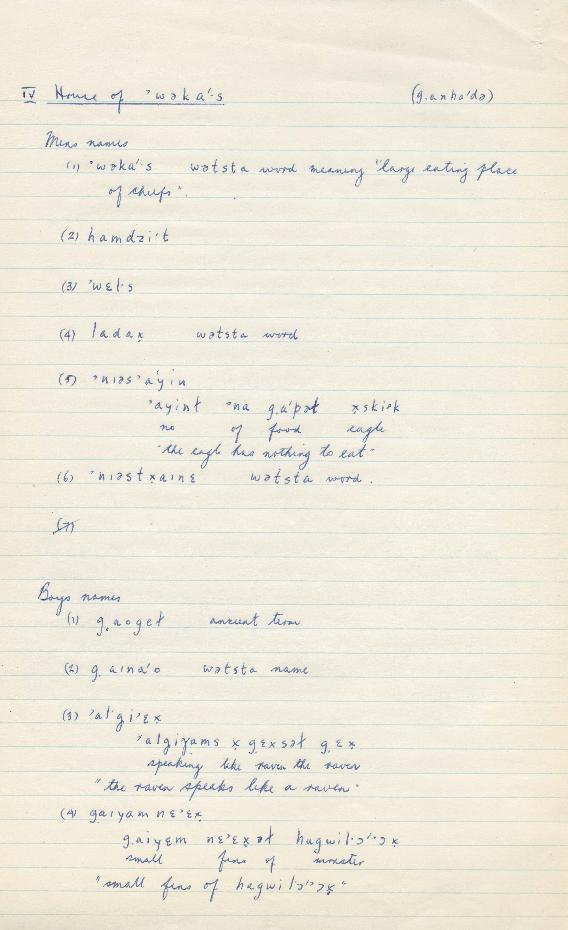 IV House of 'wəka'·s (g̣anha'də)
Mens names
(1) 'wəka'·s wətsta word meaning "large eating place
of chiefs".
(2) hamdzi't
(3) 'wɛl·s
(4) ladax̣ wətsta word
(5) 'nıəs'a'yin
'ayinł 'na g̣a'pəł x̣skiək
no of food eagle
"the eagle has nothing to eat"
(6) 'nıəstx̣aınɛ wətsta word.
(7)
Boys names
(1) g̣aogeł ancient term
(2) g̣aına'o wətsta name
(3) 'al'gi'ɛx̣
'algiyams x̣ g̣ɛxsəł g̣ɛx̣
speaking like raven the raven
"the raven speaks like a raven"
(4) gaiyam nɛ'ɛx̣
g̣aiyɛm nɛ'ɛx̣əł hagwil·ɔ''ɔx̣
small fins of monster
"small fins of hagwil·ɔ''ɔx̣"